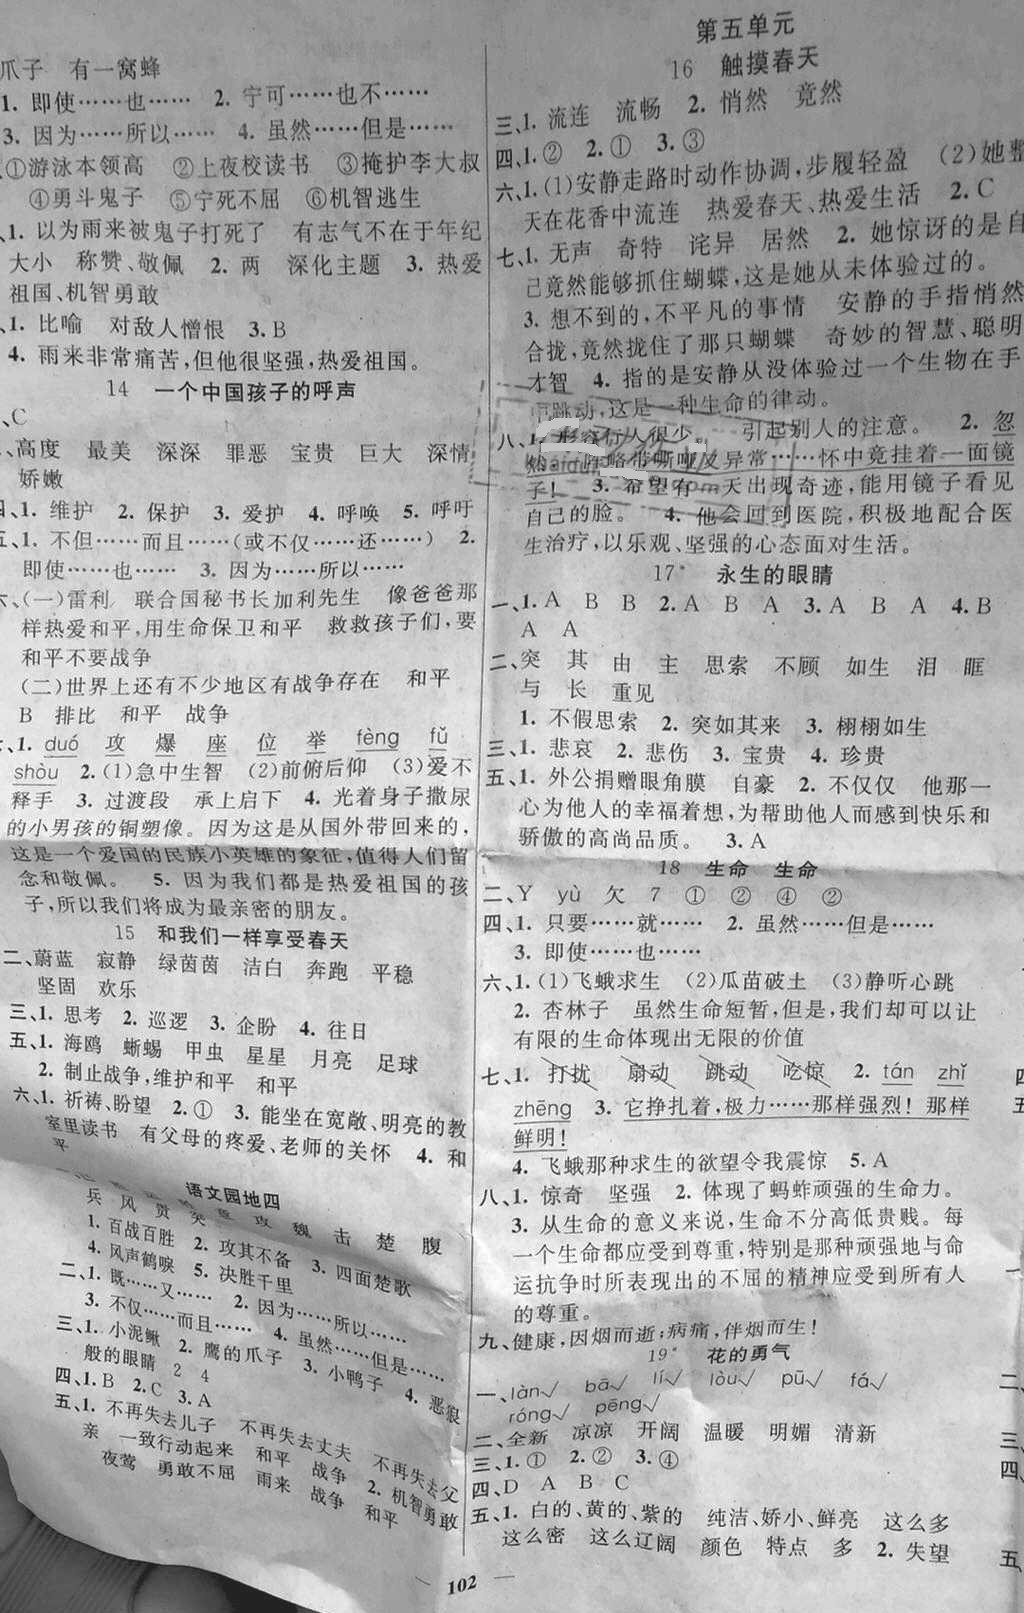 爪子 有一窝蜂
1. 即使……也…… 2. 宁可……也不……
3. 因为……所以…… 4. 虽然……但是……
①游泳本领高 ②上夜校读书 ③掩护李大叔
④勇斗鬼子 ⑤宁死不屈 ⑥机智逃生
、1. 以为雨来被鬼子打死了 有志气不在于年纪
大小 称赞、敬佩 2. 两 深化主题 3. 热爱
祖国、机智勇敢
、1. 比喻 对敌人憎恨 3. B
4. 雨来非常痛苦,但他很坚强,热爱祖国。
14 一个中国孩子的呼声
、C
、高度 最美 深深 罪恶 宝贵 巨大 深情
娇嫩
四、1. 维护 2. 保护 3. 爱护 4. 呼唤 5. 呼吁
五、1. 不但……而且……(或不仅……还……) 2.
即使……也…… 3. 因为……所以……
六、(一)雷利 联合国秘书长加利先生 像爸爸那
样热爱和平,用生命保卫和平 救救孩子们,要
和平不要战争
(二)世界上还有不少地区有战争存在 和平
B 排比 和平 战争
、1. duó 攻 爆 座 位 举 fèng fǔ
shòu 2. (1)急中生智 (2)前俯后仰 (3)爱不
释手 3. 过渡段 承上启下 4. 光着身子撒尿
的小男孩的铜塑像。因为这是从国外带回来的,
这是一个爱国的民族小英雄的象征,值得人们留
念和敬佩。 5. 因为我们都是热爱祖国的孩
子,所以我们将成为最亲密的朋友。
15 和我们一样享受春天
二、蔚蓝 寂静 绿茵茵 洁白 奔跑 平稳
坚固 欢乐
三、1. 思考 2. 巡逻 3. 企盼 4. 往日
五、1. 海鸥 蜥蜴 甲虫 星星 月亮 足球
2. 制止战争,维护和平 和平
六、1. 祈祷、盼望 2. ① 3. 能坐在宽敞、明亮的教
室里读书 有父母的疼爱、老师的关怀 4. 和
平
语文园地四
兵 风 贯 攻 魏 击 楚 腹
1. 百战百胜 2. 攻其不备 3. 四面楚歌
4. 风声鹤唳 5. 决胜千里
二、1. 既……又…… 2. 因为……所以……
3. 不仅……而且…… 4. 虽然……但是……
三、1. 小泥鳅 2. 鹰的爪子 3. 小鸭子 4. 恶狼
般的眼睛 2 4
四、1. B 2. C 3. A
五、1. 不再失去儿子 不再失去丈夫 不再失去父
亲 一致行动起来 和平 战争 2. 机智勇敢
夜莺 勇敢不屈 雨来 战争 和平
第五单元
16 触摸春天
三、1. 流连 流畅 2. 悄然 竟然
四、1. ② 2. ① 3. ③
六、1. (1)安静走路时动作协调,步履轻盈 (2)她整
天在花香中流连 热爱春天、热爱生活 2. C
七、1. 无声 奇特 诧异 居然 2. 她惊讶的是自
己竟然能够抓住蝴蝶,这是她从未体验过的。
3. 想不到的,不平凡的事情 安静的手指悄然
合拢,竟然拢住了那只蝴蝶 奇妙的智慧、聪明
才智 4. 指的是安静从没体验过一个生物在手
中跳动,这是一种生命的律动。
八、1. 形容行人很少。 引起别人的注意。 2. 忽
然,声略带嘶哑反异常……怀中竟挂着一面镜
子! 3. 希望有一天出现奇迹,能用镜子看见
自己的脸。 4. 他会回到医院,积极地配合医
生治疗,以乐观、坚强的心态面对生活。
17* 永生的眼睛
一、1. A B B 2. A B A 3. A B A 4. B
A A
二、突 其 由 主 思索 不顾 如生 泪 眶
与 长 重见
1. 不假思索 2. 突如其来 3. 栩栩如生
三、1. 悲哀 2. 悲伤 3. 宝贵 4. 珍贵
五、1. 外公捐赠眼角膜 自豪 2. 不仅仅 他那一
心为他人的幸福着想,为帮助他人而感到快乐和
骄傲的高尚品质。 3. A
18 生命 生命
二、Y yù 欠 7 ① ② ④ ②
四、1. 只要……就…… 2. 虽然……但是……
3. 即使……也……
六、1. (1)飞蛾求生 (2)瓜苗破土 (3)静听心跳
2. 杏林子 虽然生命短暂,但是,我们却可以让
有限的生命体现出无限的价值
七、1. 打扰 扇动 跳动 吃惊 2. tán zhǐ
zhēng 3. 它挣扎着,极力……那样强烈！那样
鲜明！
4. 飞蛾那种求生的欲望令我震惊 5. A
八、1. 惊奇 坚强 2. 体现了蚂蚱顽强的生命力。
3. 从生命的意义来说,生命不分高低贵贱。每
一个生命都应受到尊重,特别是那种顽强地与命
运抗争时所表现出的不屈的精神应受到所有人
的尊重。
九、健康,因烟而逝;病痛,伴烟而生！
19* 花的勇气
一、làn√ bā√ lí√ luò√ pū√ fá√
róng√ pēng√
二、全新 凉凉 开阔 温暖 明媚 清新
三、1. ① 2. ② 3. ④
四、D A B C
五、1. 白的、黄的、紫的 纯洁、娇小、鲜亮 这么多
这么密 这么辽阔 颜色 特点 多 2. 失望
102